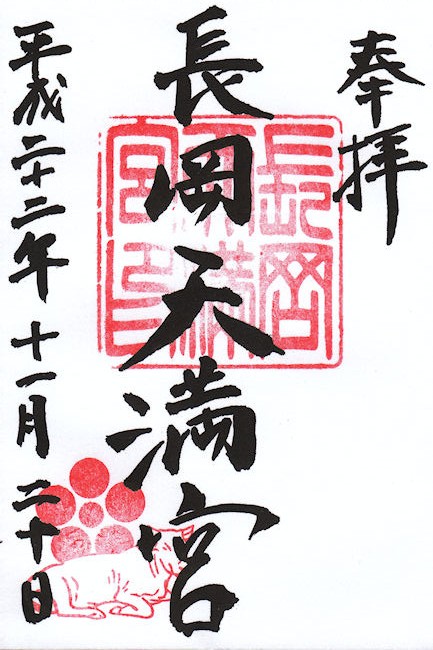 奉拝
長岡天満宮
長岡天満宮印
平成二十二年十一月二十日